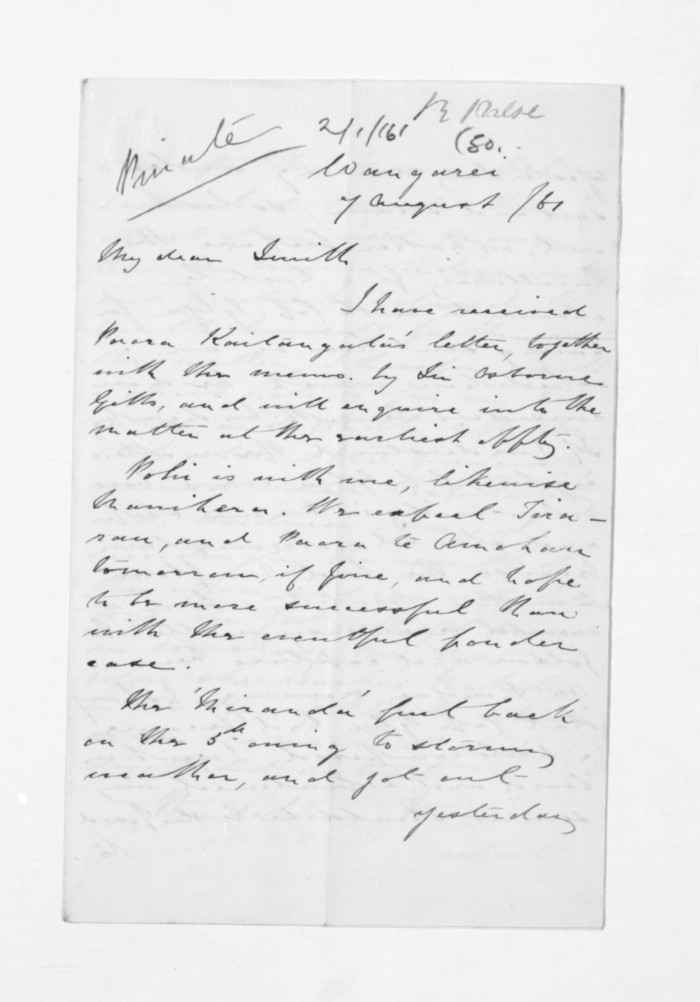 Private
2/1/61 B Halse
(80.
Wangarei
7 August /61
My dear Smith
I have received
Paora Kaitangata's letter, together
with the memo. by Sir Osborne
Gibbs, and will enquire into the
matter at the earliest oppty.
Pohi is with me, likewise
Manihera. We expect Tira-
rau, and Paora te
tomorrow, if fine, and hope
to be more successful than
with the eventful powder
case.
The 'Miranda' put back
on the 5th owing to stormy
weather, and got out
yesterday